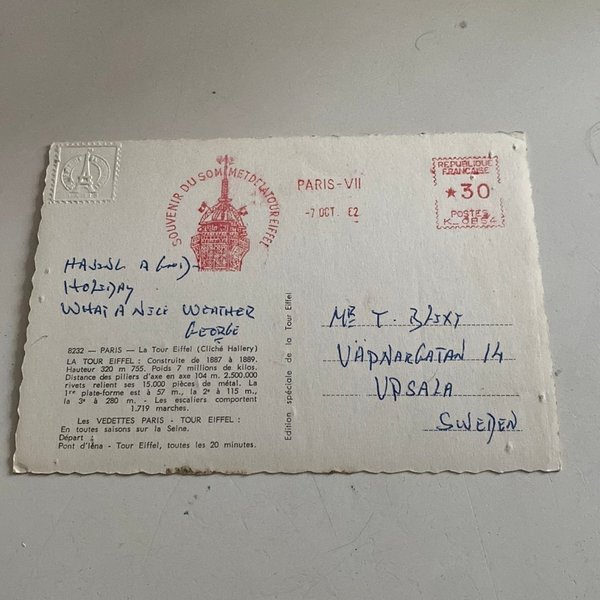 SOUVENIR DU SOMMET DE LA TOUR EIFFEL
PARIS-VII
-7 OCT. 62
REPUBLIQUE
FRANÇAISE
★30
POSTES
HAVING A GOOD
HOLIDAY
WHAT A NICE WEATHER
GEORGE
8232 — PARIS — La Tour Eiffel (Cliché Hallery)
LA TOUR EIFFEL : Construite de 1887 à 1889.
Hauteur 320 m 755. Poids 7 millions de kilos.
Distance des piliers d'axe en axe 104 m. 2.500.000
rivets relient ses 15.000 pièces de métal. La
1re plate-forme est à 57 m., la 2e à 115 m.,
la 3e à 280 m. - Les escaliers comportent
1.719 marches.
Les VEDETTES PARIS - TOUR EIFFEL :
En toutes saisons sur la Seine.
Départ :
Pont d'Iéna - Tour Eiffel, toutes les 20 minutes.
Edition spéciale de la Tour Eiffel
MR T. BLIXT
VÄPNARGATAN 14
UPSALA
SWEDEN